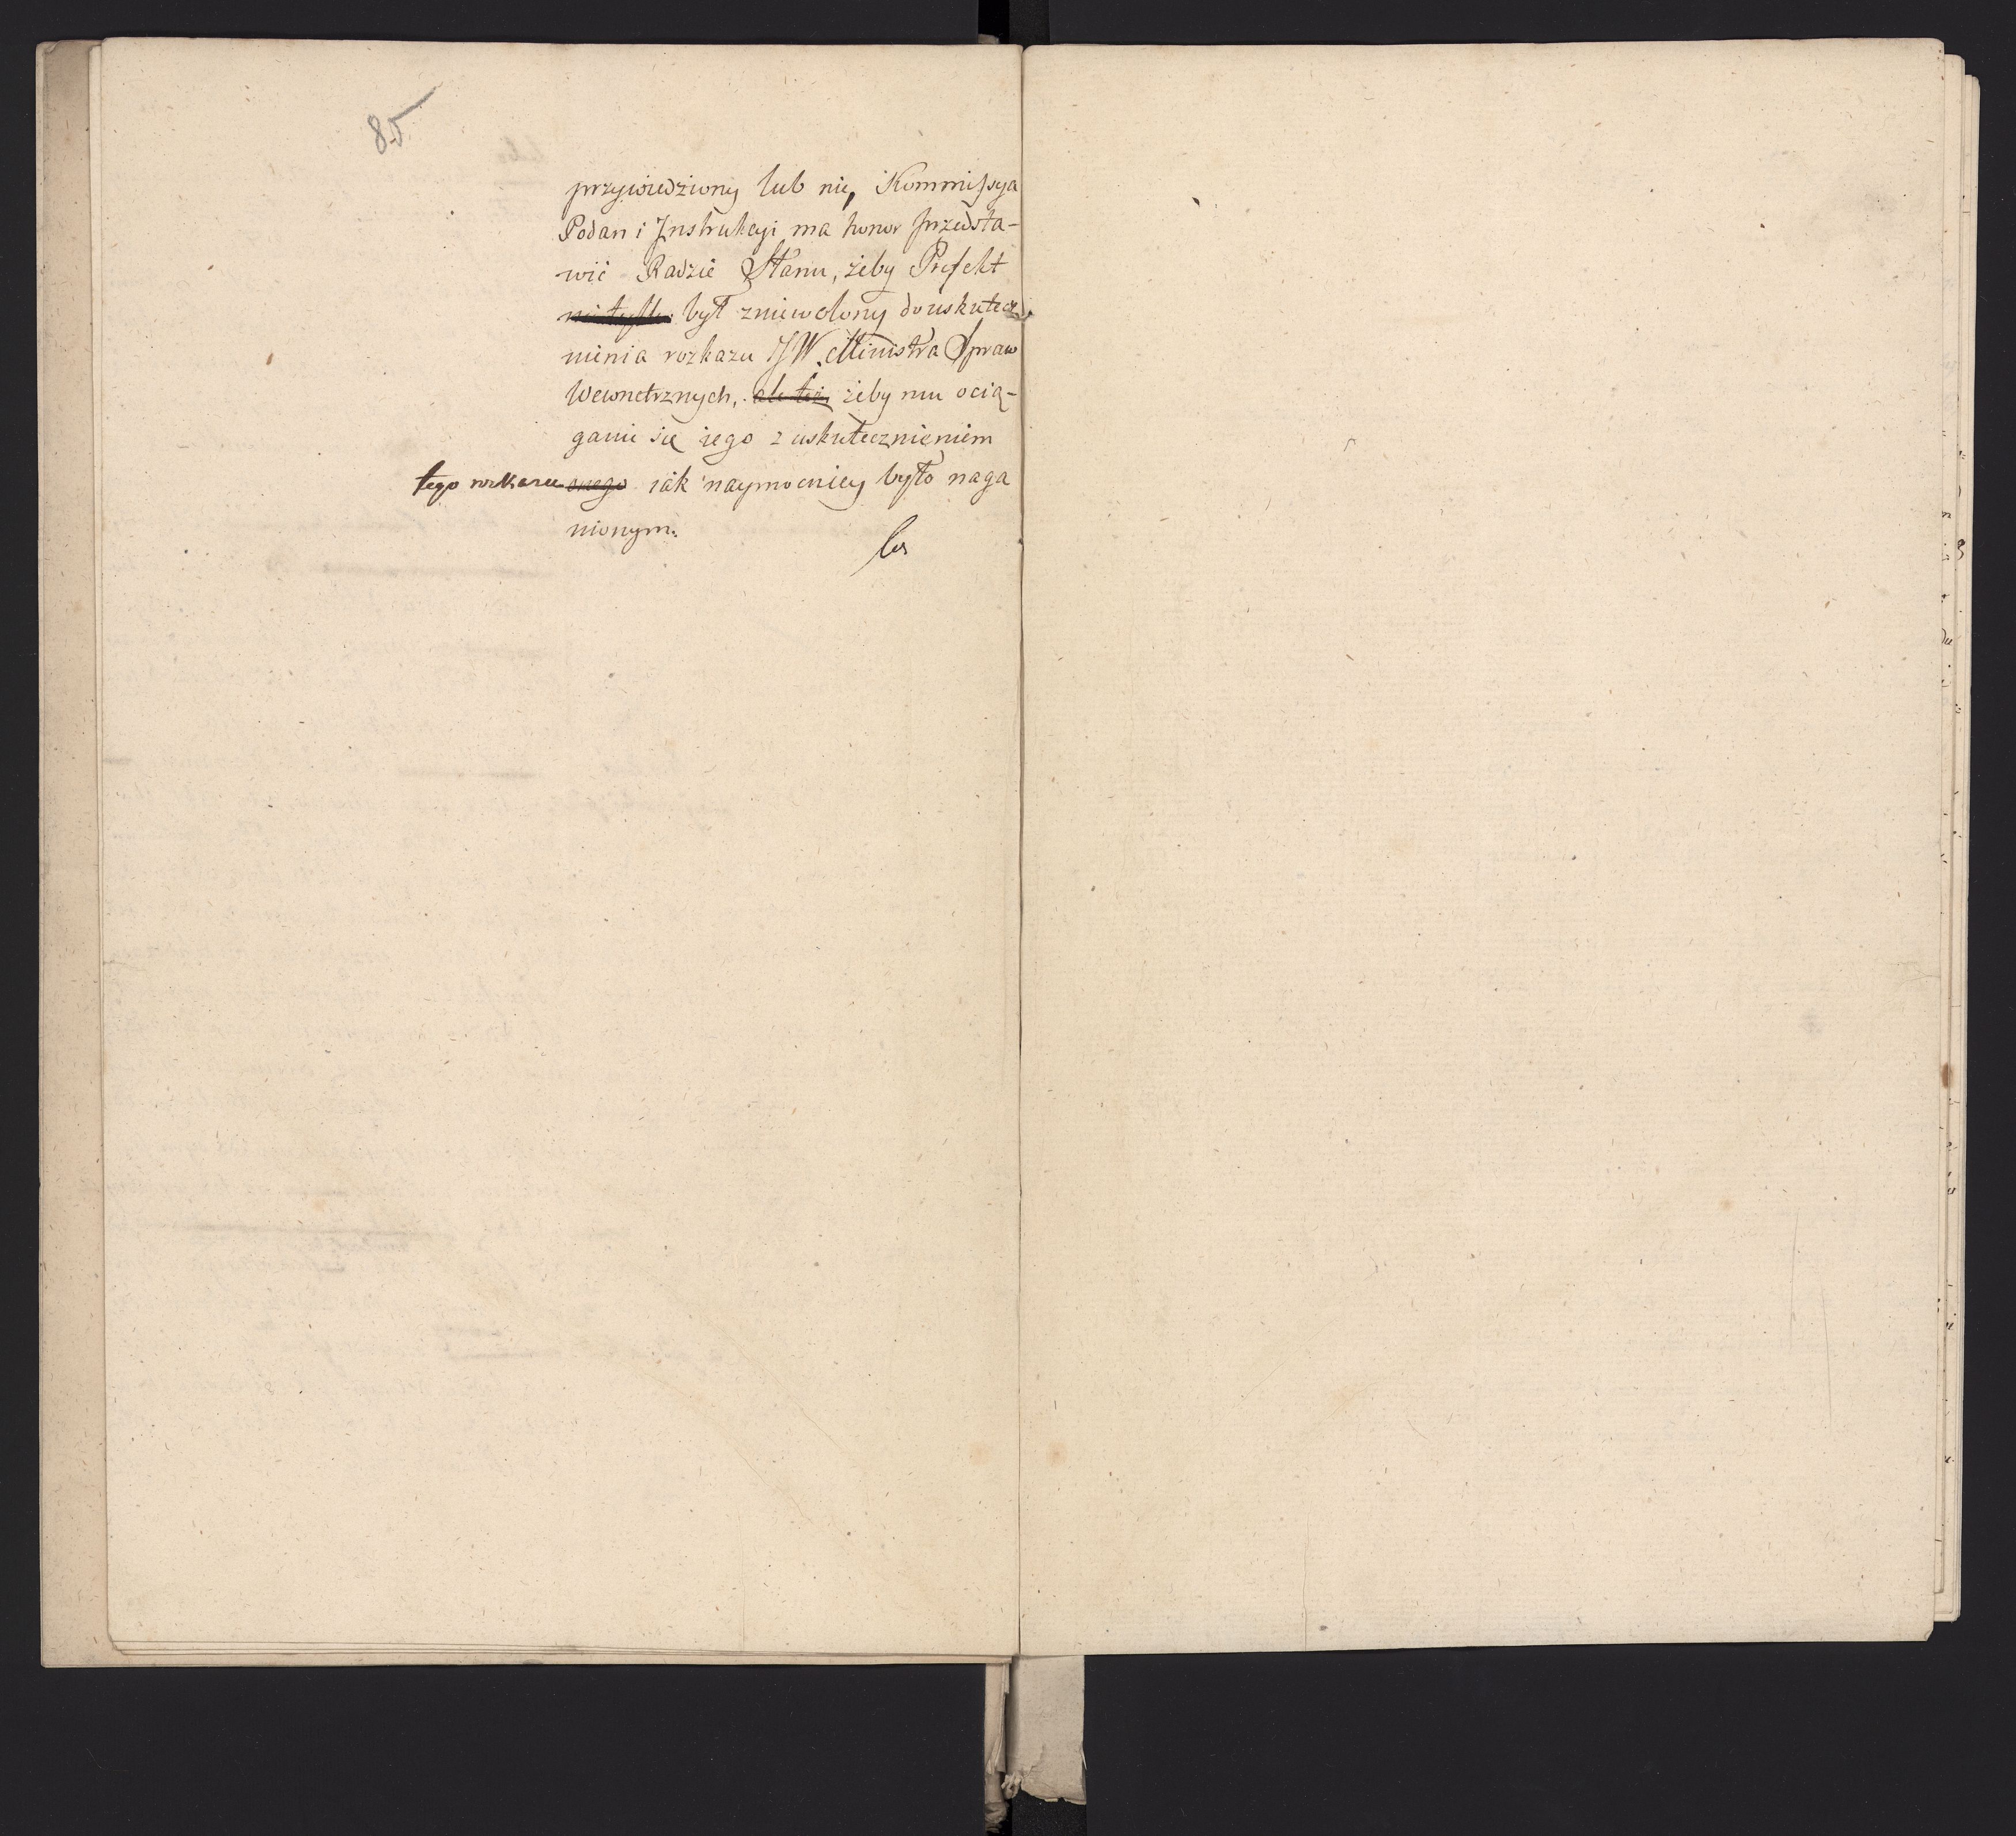 85
przywiedziony lub nie, Kommissya
Podań i Instrukcyi ma honor przedsta-
wić Radzie Stanu, żeby Prefekt
nietylko był zniewolony do uskutecz-
nienia rozkazu JW. Ministra Spraw
Wewnetrznych, ale też żeby mu ocią-
ganie się iego z uskutecznieniem
tego rozkazu onego iak naymocniey było naga
nionym.